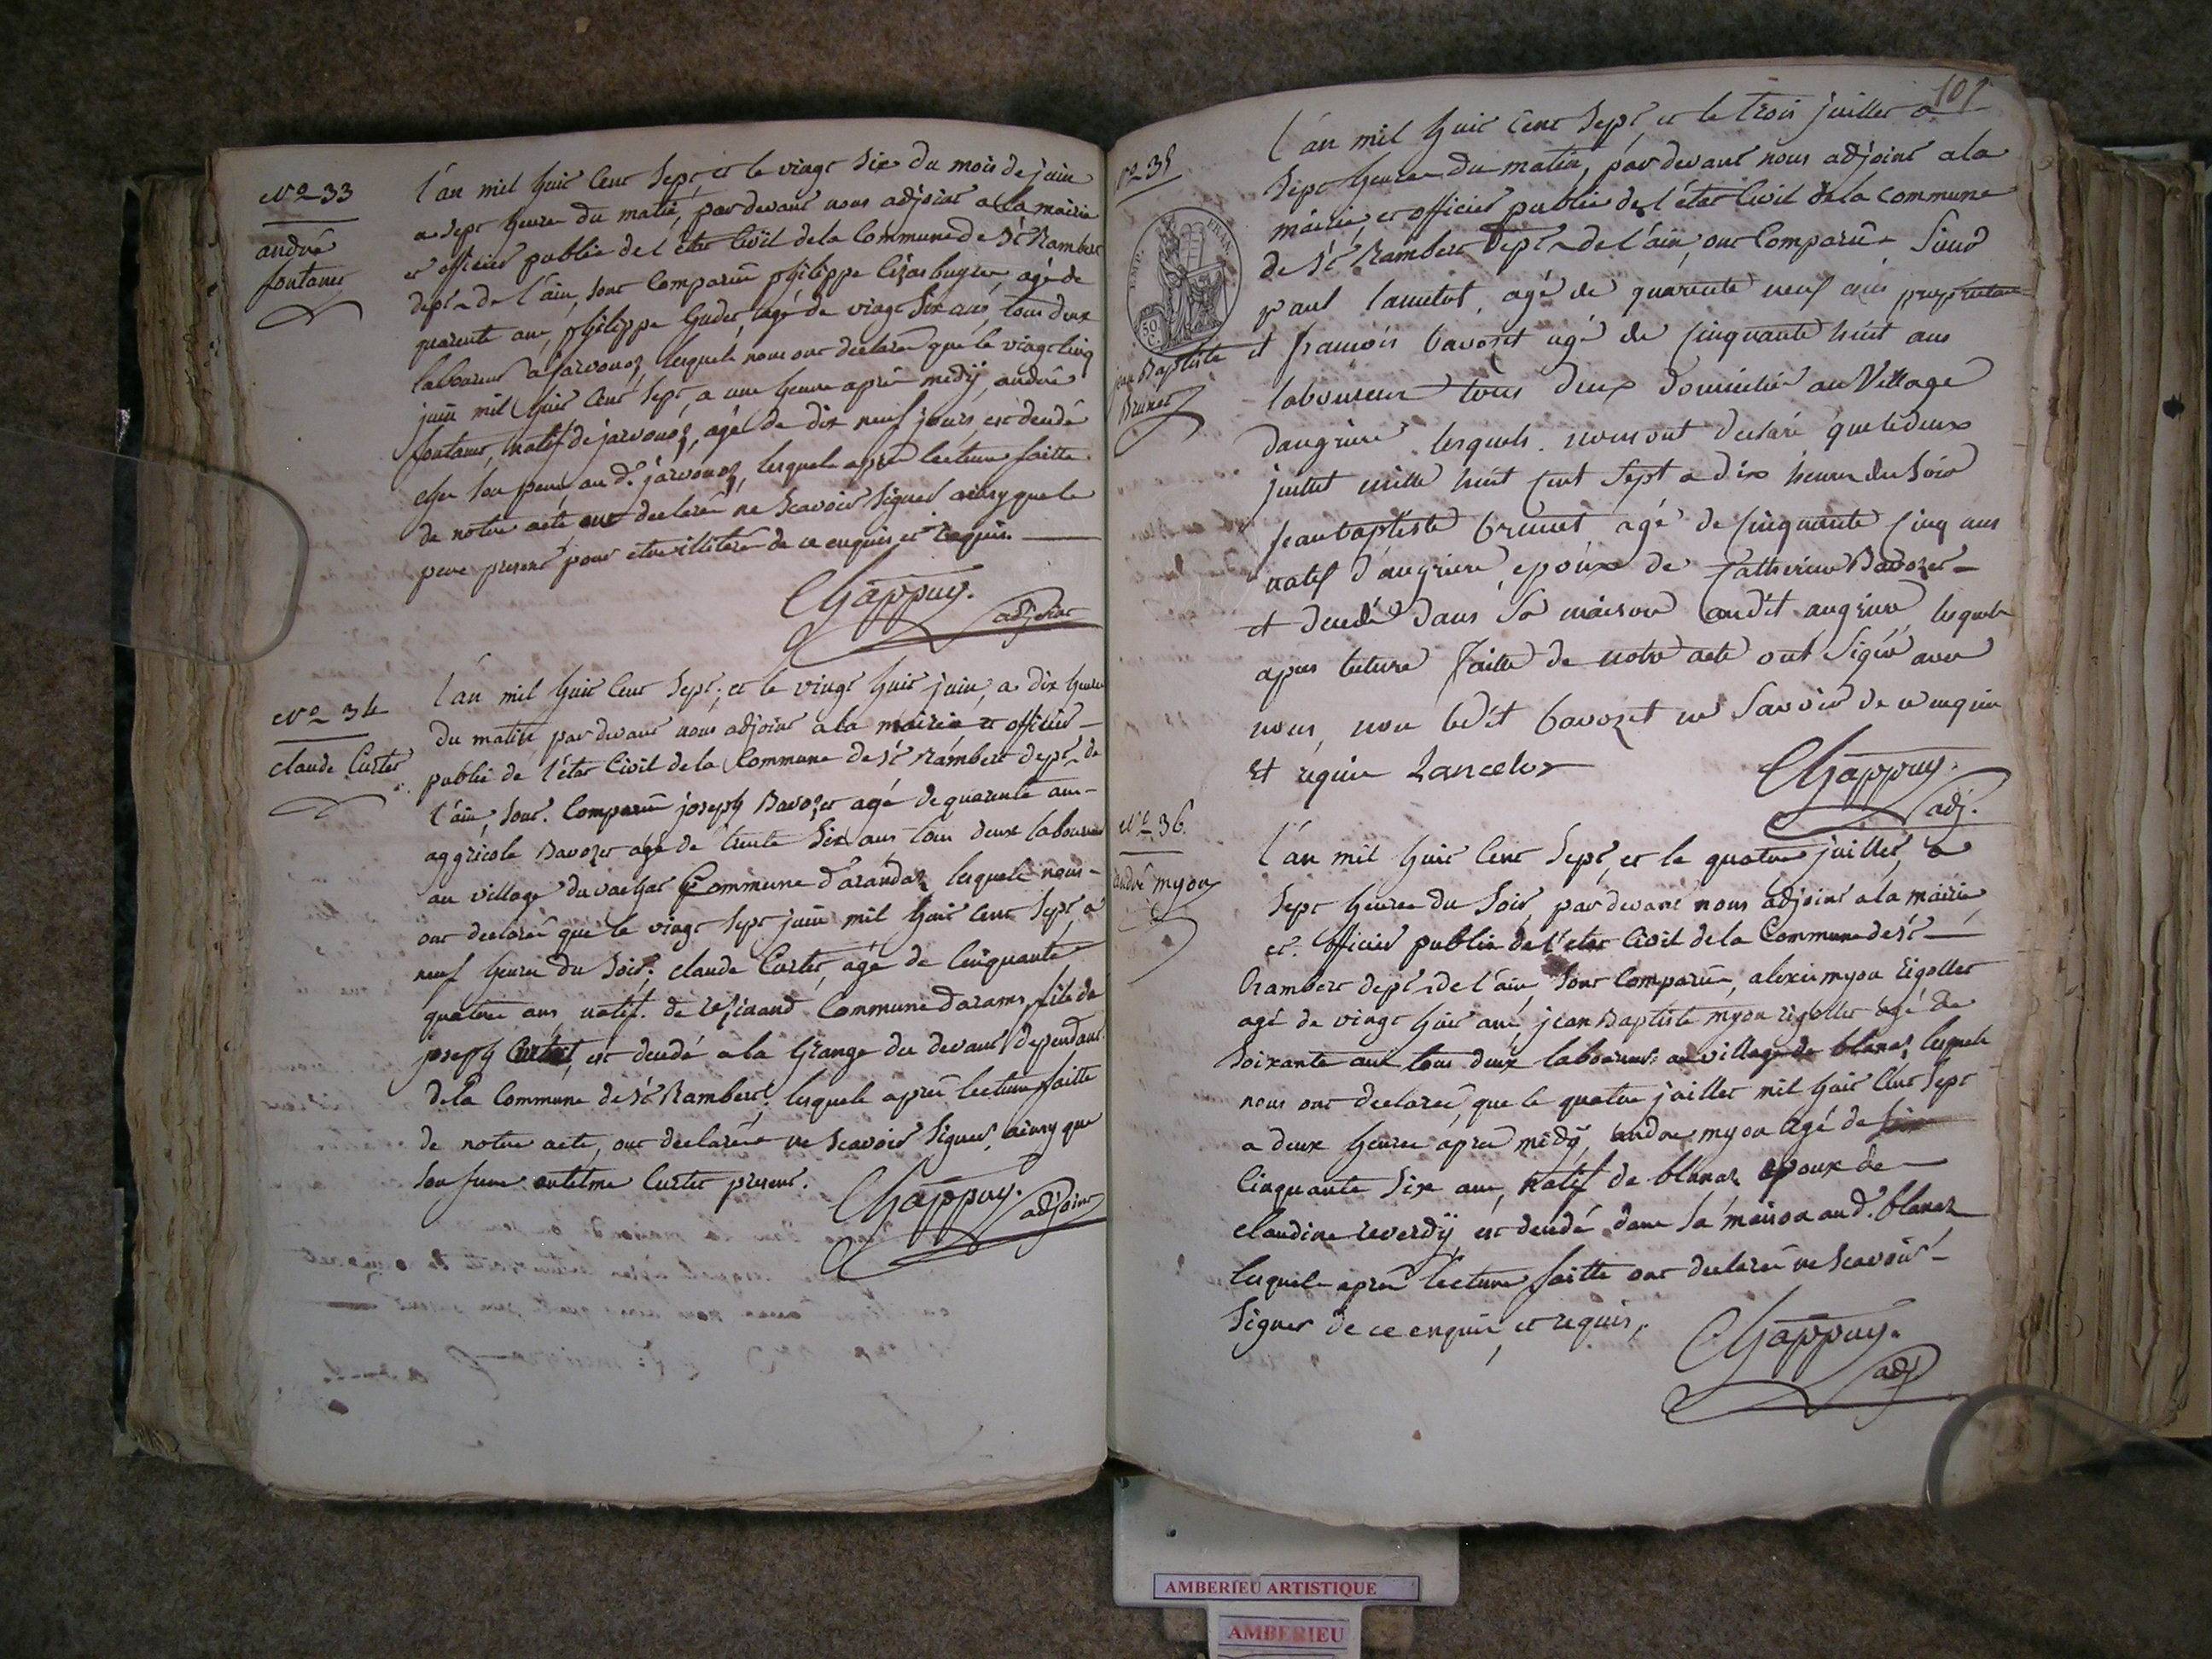 N° 33
andré
fontanet
l'an mil huit Cent Sept et le vingt Six du mois de juin
a Sept heure du matin, pardevant nous adjoint a la mairie
et officier public de l'état Civil de la Commune de St Rambert
dept de l'ain, sont Comparûs philippe agé de
quarente ans, philippe Gudet, agé de vingt Six ans, tous deux
laboureurs a jarvonoz, lesquels nous ont declarés que le vingt Cinq
juin mil huit Cent Sept, a une heure aprés midÿ, andré
fontanet, natif de jarvonoz, agé de dix neuf jours, est decedé
chez Son pere, au d. jarvonoz, lesquels après lecture faitte
de notre acte ont declarés ne Scavoir Signer ainsy que le
pere present pour etre illiteré de ce enquis et requis.
Chappuy.
adjoint
N° 34
claude Curtet
l'an mil huit Cent Sept, et le vingt huit juin, a dix heure
du matin pardevant nous adjoint a la mairie et officier
public de l'état Civil de la Commune de St Rambert dept de
l'ain, Sont Comparûs joseph Bavozet agé de quarente ans
aggricole Bavozet agé de trente Six ans tous deux laboureurs
au village du vachat Commune d'arandaz lesquels nous
ont declarés que le vingt Sept juin mil huit Cent Sept, a
neuf heures du Soir, claude Curtet, agé de Cinquante
quatre ans natif de Commune d'arans, fils de
joseph Curtet, est decedé a la Grange du devant dependant
de la Commune de St Rambert. lesquels après lecture faitte
de notre acte, ont declarés ne Scavoir Signer, ainsy que
Son frere antelme Curtet present.
Chappuy.
adjoint
101
N° 35
EMP. FRAN.
50
C.
jean Baptiste
Brunet
l'an mil huit Cent Sept, et le trois juillet a
Sept heures du matin, pardevant nous adjoint a la
mairie, et officier public de l'état Civil de la Commune
de St Rambert dept de l'ain, ont Comparûs Sieur
paul lancelot, agé de quarente neuf ans proprietaire
et francois bavozet agé de Cinquante huit ans
laboureur tous deux domiciliés au Village
dangriere lesquels nous ont declaré que le deux
juillet mille huit Cent Sept a dix heures du Soir
jean baptiste brunet agé de Cinquante Cinq ans
natif d'angriere, epoux de Catherine Bavozet
et decedé dans Sa maison audit angriere, lesquels
apres lecture faitte de notre acte ont Signé avec
nous, non ledit bavozet ne Savoir de ce enquis
et requis Lancelot
Chappuy.
adj.
N° 36
andré myon
l'an mil huit Cent Sept, et le quatre juillet, a
Sept heures du Soir, pardevant nous adjoint a la mairie
et officier public de l'état Civil de la Commune de St
Rambert dept de l'ain Sont Comparûs, alexis myon rigollet
agé de vingt huit ans, jean Baptiste myon rigollet agé de
Soixante ans tous deux laboureurs au village de blanaz, lesquels
nous ont declarés, que le quatre juillet mil huit Cent Sept
a deux heures après midÿ, andré myon agé de
Cinquante Six ans, natif de blanaz epoux de
claudine reverdÿ, est decedé dans Sa maison au d. blanaz
lesquels après lecture faitte ont declarés ne Scavoir
Signer de ce enquis, et requis.
Chappuy.
adj
AMBERIEU ARTISTIQUE
AMBERIEU